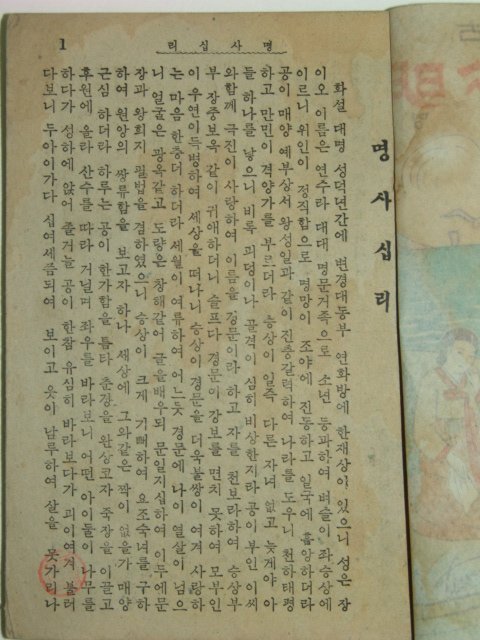 1
명사십리
명사십리
화설 대명 성덕년간에 변경대동부 연화방에 한재상이 있으니 성은 장
이오 이름은 연수라 대대 명문거족으로 소년 등과하여 벼슬이 좌승상에
이르니 위인이 정직함으로 명망이 조야에 진동하고 일국에 흡앙하더라
공이 매양 예부상서 왕성일과 같이 진충갈력하여 나라를 도우니 천하태평
하고 만민이 격양가를 부르더라 승상이 일즉 다른 자녀 없고 늦게야 아
들 하나를 낳으니 비록 괴덩이나 골격이 심히 비상한지라 공이 부인 이씨
와함께 극진이 사랑하여 이름을 경문이라 하고 자를 천보라하여 승상부
부 장중보옥 같이 귀애하더니 슬프다 경문이 강보를 면치 못하여 모부인
이 우연이득병하여 세상을 떠나니 승상이 경문을 더욱불쌍이 여겨 사랑하
는 마음 한층더 하더라 세월이 여류하여 어느듯 경문에 나이 열살이 넘으
니 얼굴은 관옥같고 도량은 창해같어 글을배우되 문일지십하여 이두에문
장과 왕희지 필법을 겸하였으니 승상이 크게 기뻐하여 요조숙녀를 구하
하여 원앙의 쌍류함을 보고자 하나 세상에 그와같은 짝이 없을가 매양
근심 하더라 하루는 공이 한가함을 틈타 춘장을 완상코자 죽장을 이끌고
후원에 올라 산수를 따라 거닐며 좌우를 바라보니 어떤 아이들이 나무를
하다가 성하에 앉어 줄거늘 공이 한참 유심히 바라보다가 괴이여겨 불러
다보니 두아이가다 십여세쯤되여 보이고 옷이 남루하여 살을 못가리나